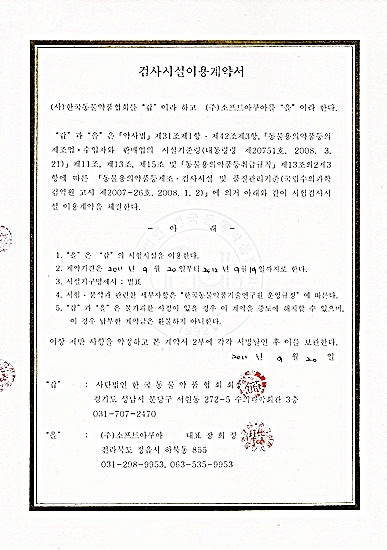 검사시설이용계약서
(사)한국동물약품협회를 "갑" 이라 하고 (주)소프트아쿠아를 "을" 이라 한다.
"갑" 과 "을" 은 「약사법」 제31조제1항 · 제42조제3항, 「동물용의약품등의
제조업 · 수입자와 판매업의 시설기준령(대통령령 제20751호, 2008. 3.
21)」 제11조, 제13조, 제15조 및 「동물용의약품등취급규칙」 제13조의2제3
항에 따른 「동물용의약품등제조 · 검사시설 및 품질관리기준(국립수의과학
검역원 고시 제2007-26호, 2008. 1. 2)」에 의거 아래와 같이 시험검사시
설 이용계약을 체결한다.
- 아 래 -
1. "을" 은 "갑" 의 시험시설을 이용한다.
2. 계약기간은 2011 년 9 월 20 일부터 2012 년 9월 19일까지로 한다.
3. 시설기구명세서 : 별표
4. 시험 · 분석과 관련한 세부사항은 "한국동물약품기술연구원 운영규정" 에 따른다.
5. "갑" 과 "을" 은 불가피한 사정이 있을 경우 이 계약을 중도에 해지할 수 있으며,
이 경우 납부한 계약금은 환불하지 아니한다.
이상 제반 사항을 약정하고 본 계약서 2부에 각각 서명날인 후 이를 보관한다.
2011 년 9 월 20 일
"갑" : 사단법인 한 국 동 물 약 품 협 회 회
경기도 성남시 분당구 서현동 272-5 수의과학회관 3층
031-707-2470
"을" : (주)소프트아쿠아 대표 장 희 정
전라북도 정읍시 하북동 855
031-298-9953, 063-535-9953